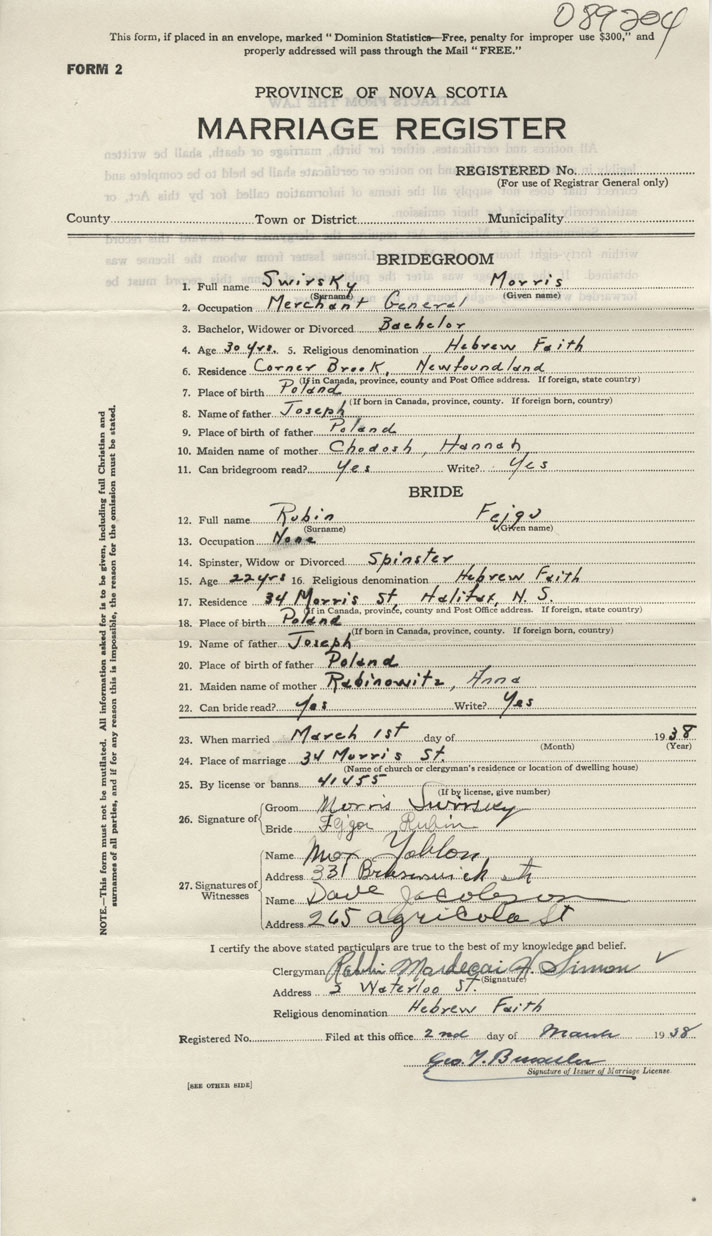 089204
This form, if placed in an envelope, marked "Dominion Statistics—Free, penalty for improper use $300," and
properly addressed will pass through the Mail "FREE."
FORM 2
PROVINCE OF NOVA SCOTIA
MARRIAGE REGISTER
REGISTERED No.
(For use of Registrar General only)
County Town or District Municipality
BRIDEGROOM
1. Full name Swirsky Morris
(Surname) (Given name)
2. Occupation Merchant General
3. Bachelor, Widower or Divorced Bachelor
4. Age 30 yrs. 5. Religious denomination Hebrew Faith
6. Residence Corner Brook, Newfoundland
(If in Canada, province, county and Post Office address. If foreign, state country)
7. Place of birth Poland
(If born in Canada, province, county. If foreign born, country)
8. Name of father Joseph
9. Place of birth of father Poland
10. Maiden name of mother Chodosh, Hannah
11. Can bridegroom read? Yes Write? Yes
BRIDE
12. Full name Rubin Fejga
(Surname) (Given name)
13. Occupation None
14. Spinster, Widow or Divorced Spinster
15. Age 22 yrs 16. Religious denomination Hebrew Faith
17. Residence 34 Morris St, Halifax, N.S.
(If in Canada, province, county and Post Office address. If foreign, state country)
18. Place of birth Poland
(If born in Canada, province, county. If foreign born, country)
19. Name of father Joseph
20. Place of birth of father Poland
21. Maiden name of mother Rabinowitz, Anna
22. Can bride read? Yes Write? Yes
23. When married March 1st day of 1938
(Month) (Year)
24. Place of marriage 34 Morris St.
(Name of church or clergyman's residence or location of dwelling house)
25. By license or banns 41455
(If by license, give number)
26. Signature of Groom Morris Swirsky
Bride Fejga Rubin
27. Signatures of Witnesses
Name Max Yablon
Address 331 Brunswick St
Name Dave Jacobson
Address 265 Agricola St
I certify the above stated particulars are true to the best of my knowledge and belief.
Clergyman Rabbi Mardecai H. Simon
(Signature)
Address 5 Waterloo St.
Religious denomination Hebrew Faith
Registered No. Filed at this office 2nd day of March 1938
Geo. T.
Signature of Issuer of Marriage License
[SEE OTHER SIDE]
NOTE.—This form must not be mutilated. All information asked for is to be given, including full Christian and
surnames of all parties, and if for any reason this is impossible, the reason for the omission must be stated.